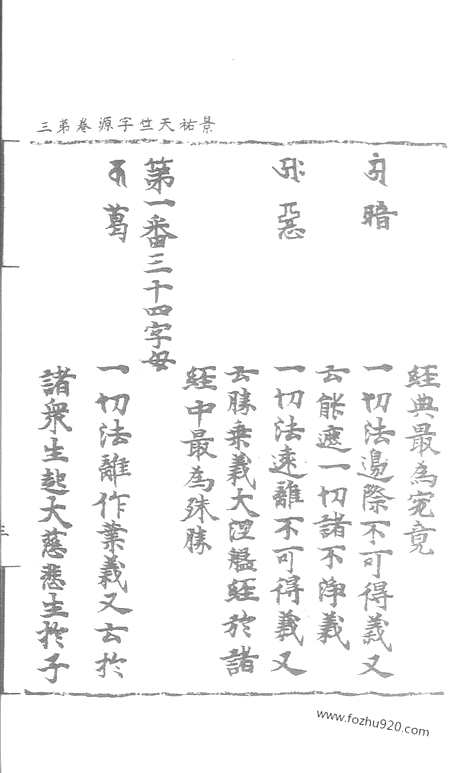 景祐天竺字源卷弟三
經典最為究竟
暗 一切法邊際不可得義又
云能遮一切諸不淨義
惡 一切法遠離不可得義又
云勝乗義大涅槃經於諸
經中最為殊勝
第一番三十四字母
葛 一切法離作業義又云於
諸衆生起大慈悲生於子
www.fozhu920.com